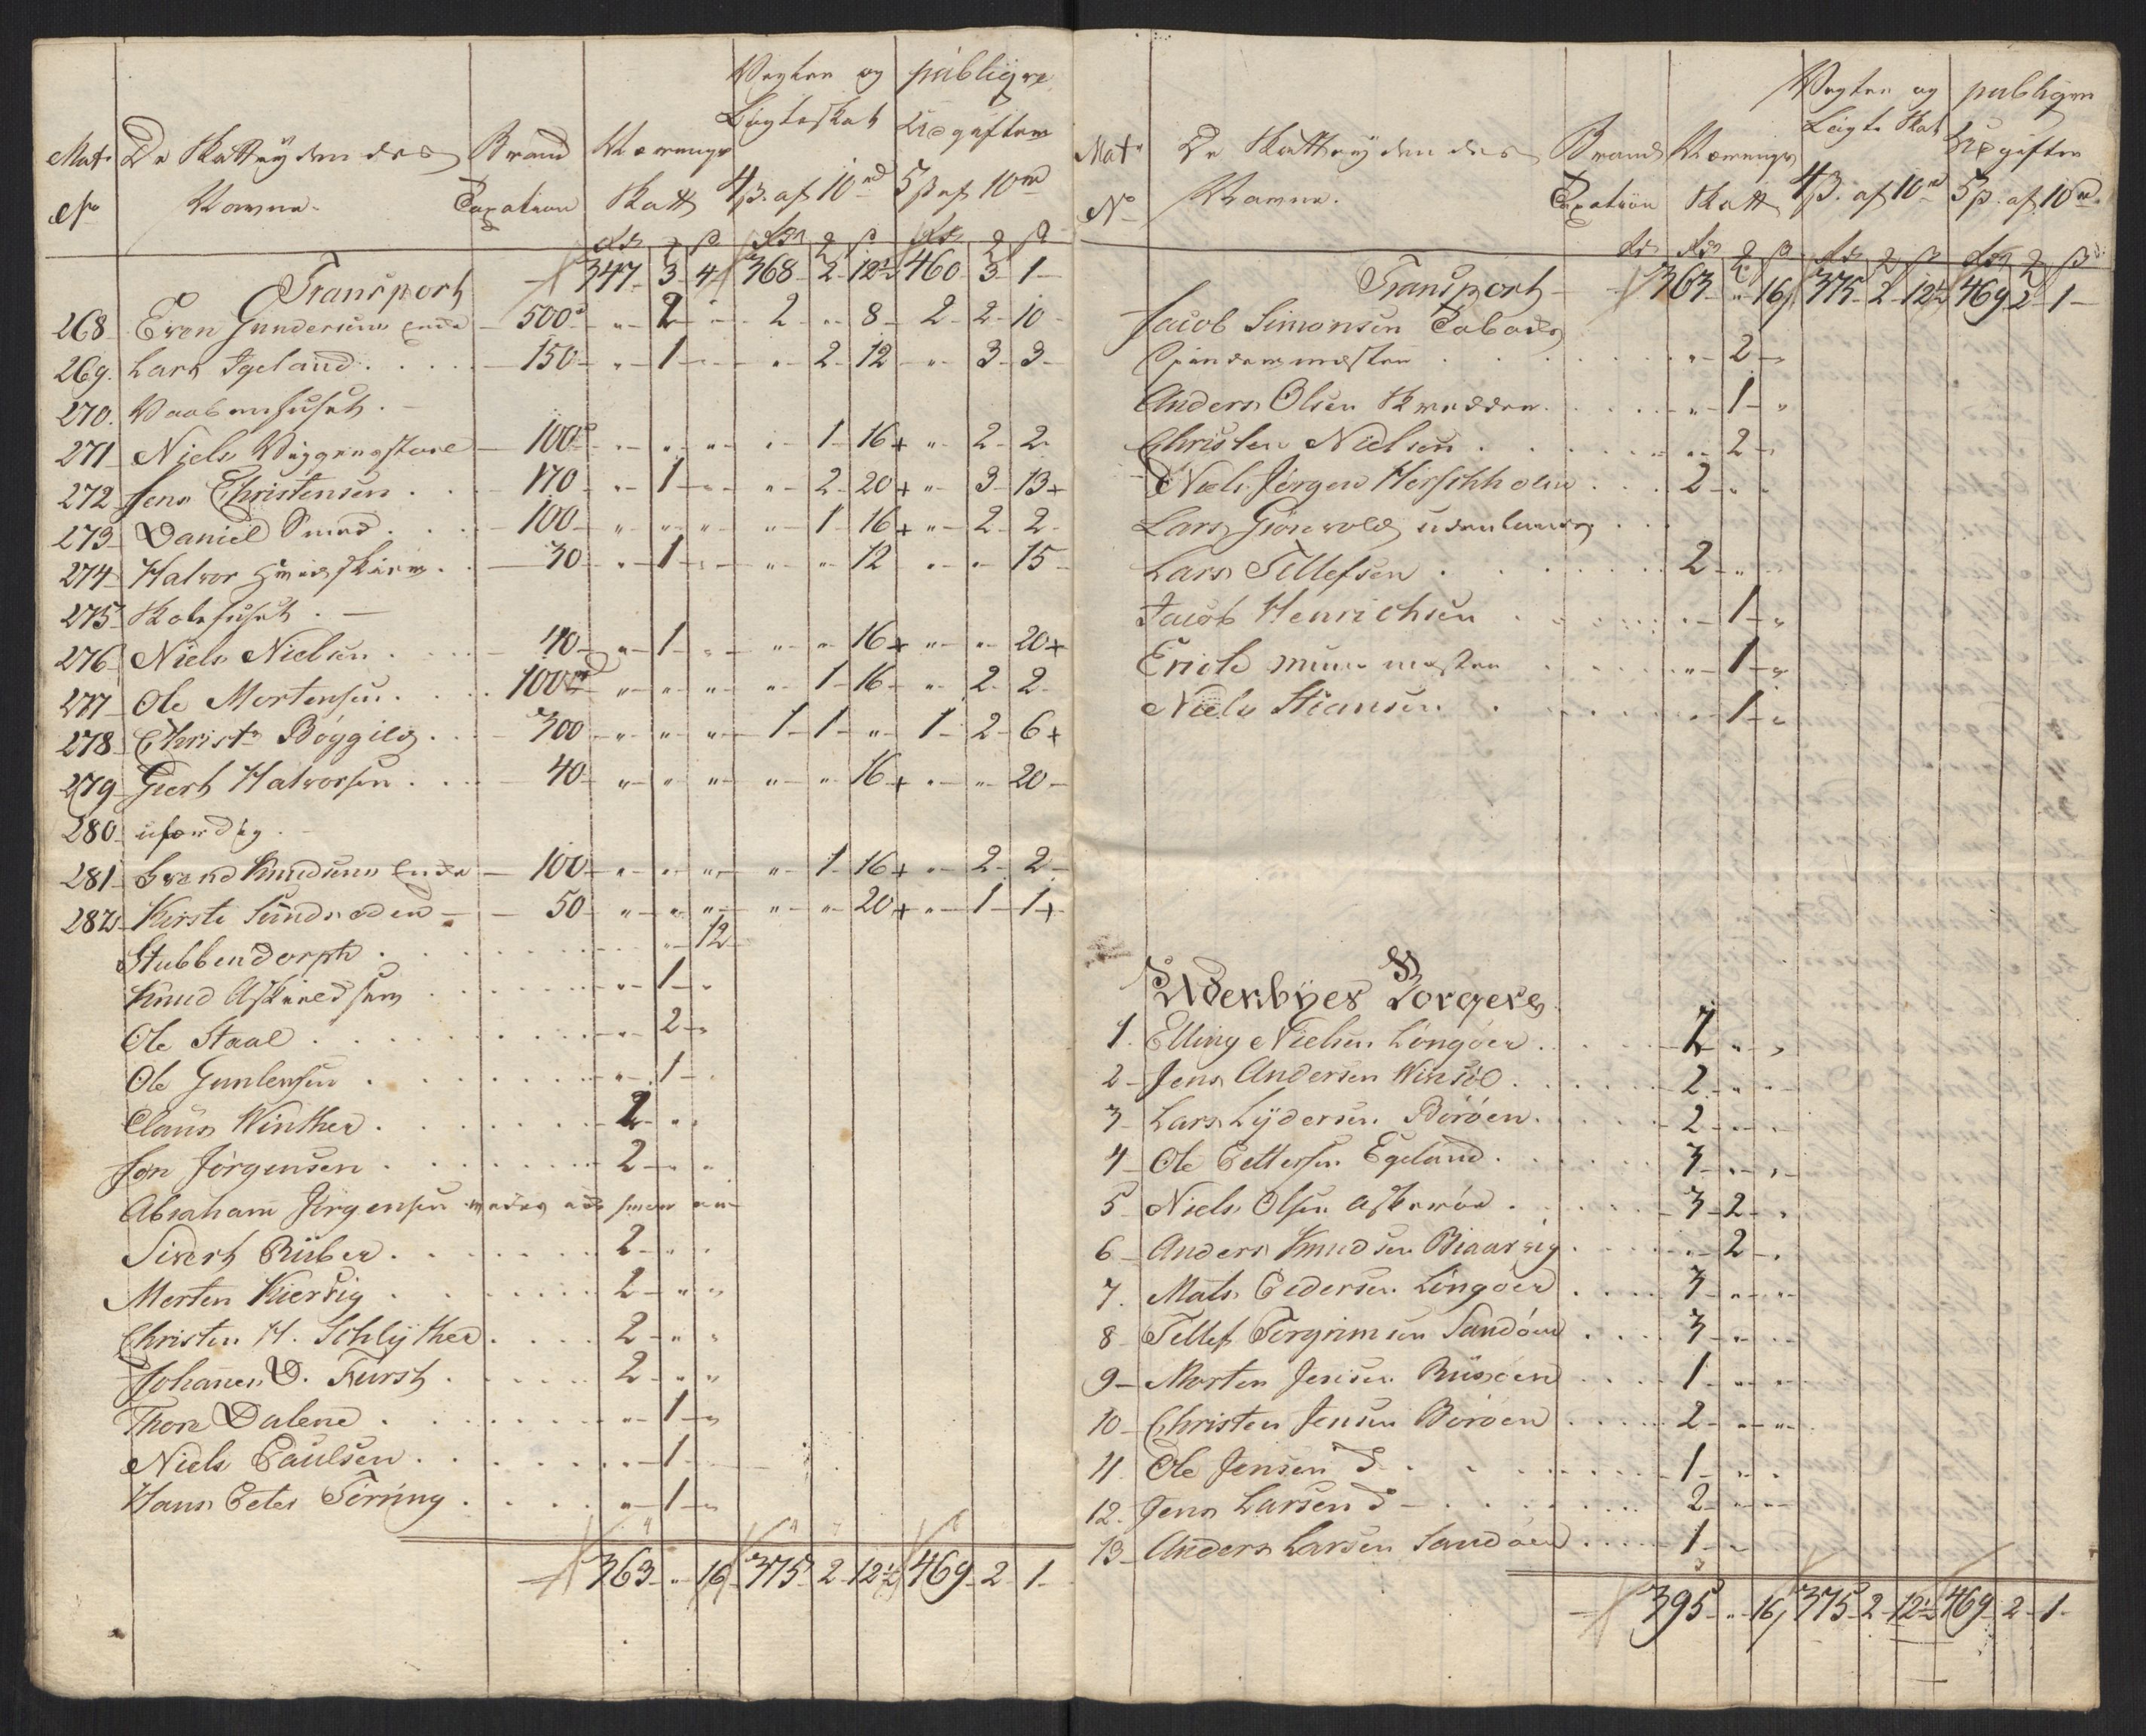 Vegter og publiqve
Lögte Skat Udgifter
Matr De Skattydendes Brand Nærings
No Navne. Taxation Skatt 4 ß. af 10 rd 5 ß af 10 rd
Transport 347 3 4 368 2 12½ 460 3 1
268 Even Gundersens Enke 500 " 2 " 2 " 8 2 2 10
269. Lars Igeland 150 " 1 " " 2 12 " 3 3
270. Vaabenhuset.
271 Niels 100 " " " " 1 16+ " 2 2
272 Jens Christensen 170 " 1 " " 2 20+ " 3 13+
273 Daniel Smed 100 " " " " 1 16+ " 2 2
274 Halvor 30 " 1 " " " 12 " " 15
275 Skolehuset.
276 Niels Nielsen 40 " 1 " " " 16+ " " 20+
277 Ole Mortensen 100 " " " " 1 16 " 2 2
278 Christn Böygild 300 " " " 1 1 " 1 2 6+
279 Giert Halvorsen 40 " " " " " 16+ " " 20
280 uferdig.
281 Svend Knudsens Enke 100 " " " " 1 16+ " 2 2
282 Kirsti Sundsøden 50 " " " " " 20+ " 1 1+
Stubbendorph " 12
Knud " 1 "
Ole Staal " 2 "
Ole Gunlersen " 1 "
Claus Winther 2 " "
Jøn Jörgensen 2 " "
Abraham Jörgensen
Sivert Rüber 2 " "
Morten Kiervig 2 " "
Christen H. Schlyther 2 " "
Johanes D. Fürst 2 " "
Thore Dalene " 1 "
Niels Paulsen " 1
Hans Peter Törring " 1 "
363 " 16 375 2 12½ 469 2 1
Vegter og publiqve
Lögte Skat Udgifter
Matr De Skattydendes Brand Nærings
No Navne. Taxation Skatt 4 ß. af 10 rd 5 ß. af 10 rd.
Transport 363 " 16 375 2 12½ 469 2 1
Jacob Simonsen Tobaks
Spindermester " 2 "
Anders Olsen Skredder " 1 "
Christen Nielsen " 2 "
Niels Jörgen Hirschholm 2 " "
Lars Grönvold udenlands
Lars Tellefsen 2 "
Jacob Henrichsen " 1 "
Erich muur mester " 1 "
Niels Stiansen " 1 "
Udenbyes Borgere
1. Elling Nielsen Lyngöer 2 " "
2 Jens Andersen Winsöl 2 " "
3 Lars Lydersen Boröen 2 " "
4 Ole Pettersen Egeland 3 " "
5 Niels Olsen Askeröe 3 2 "
6 Anders Knudsen Biaarvig " 2 "
7. Mats Pedersen Lingöer 3 " "
8 Tellef Torgrimsen Sandöen 3 " "
9 Morten Jensen Riisöen 1 " "
10 Christen Jensen Boröen 2 " "
11. Ole Jensen do 1 " "
12. Jens Larsen do 2 " "
13 Anders Larsen Sandöen 1 "
395 " 16 375 2 12½ 469 2 1